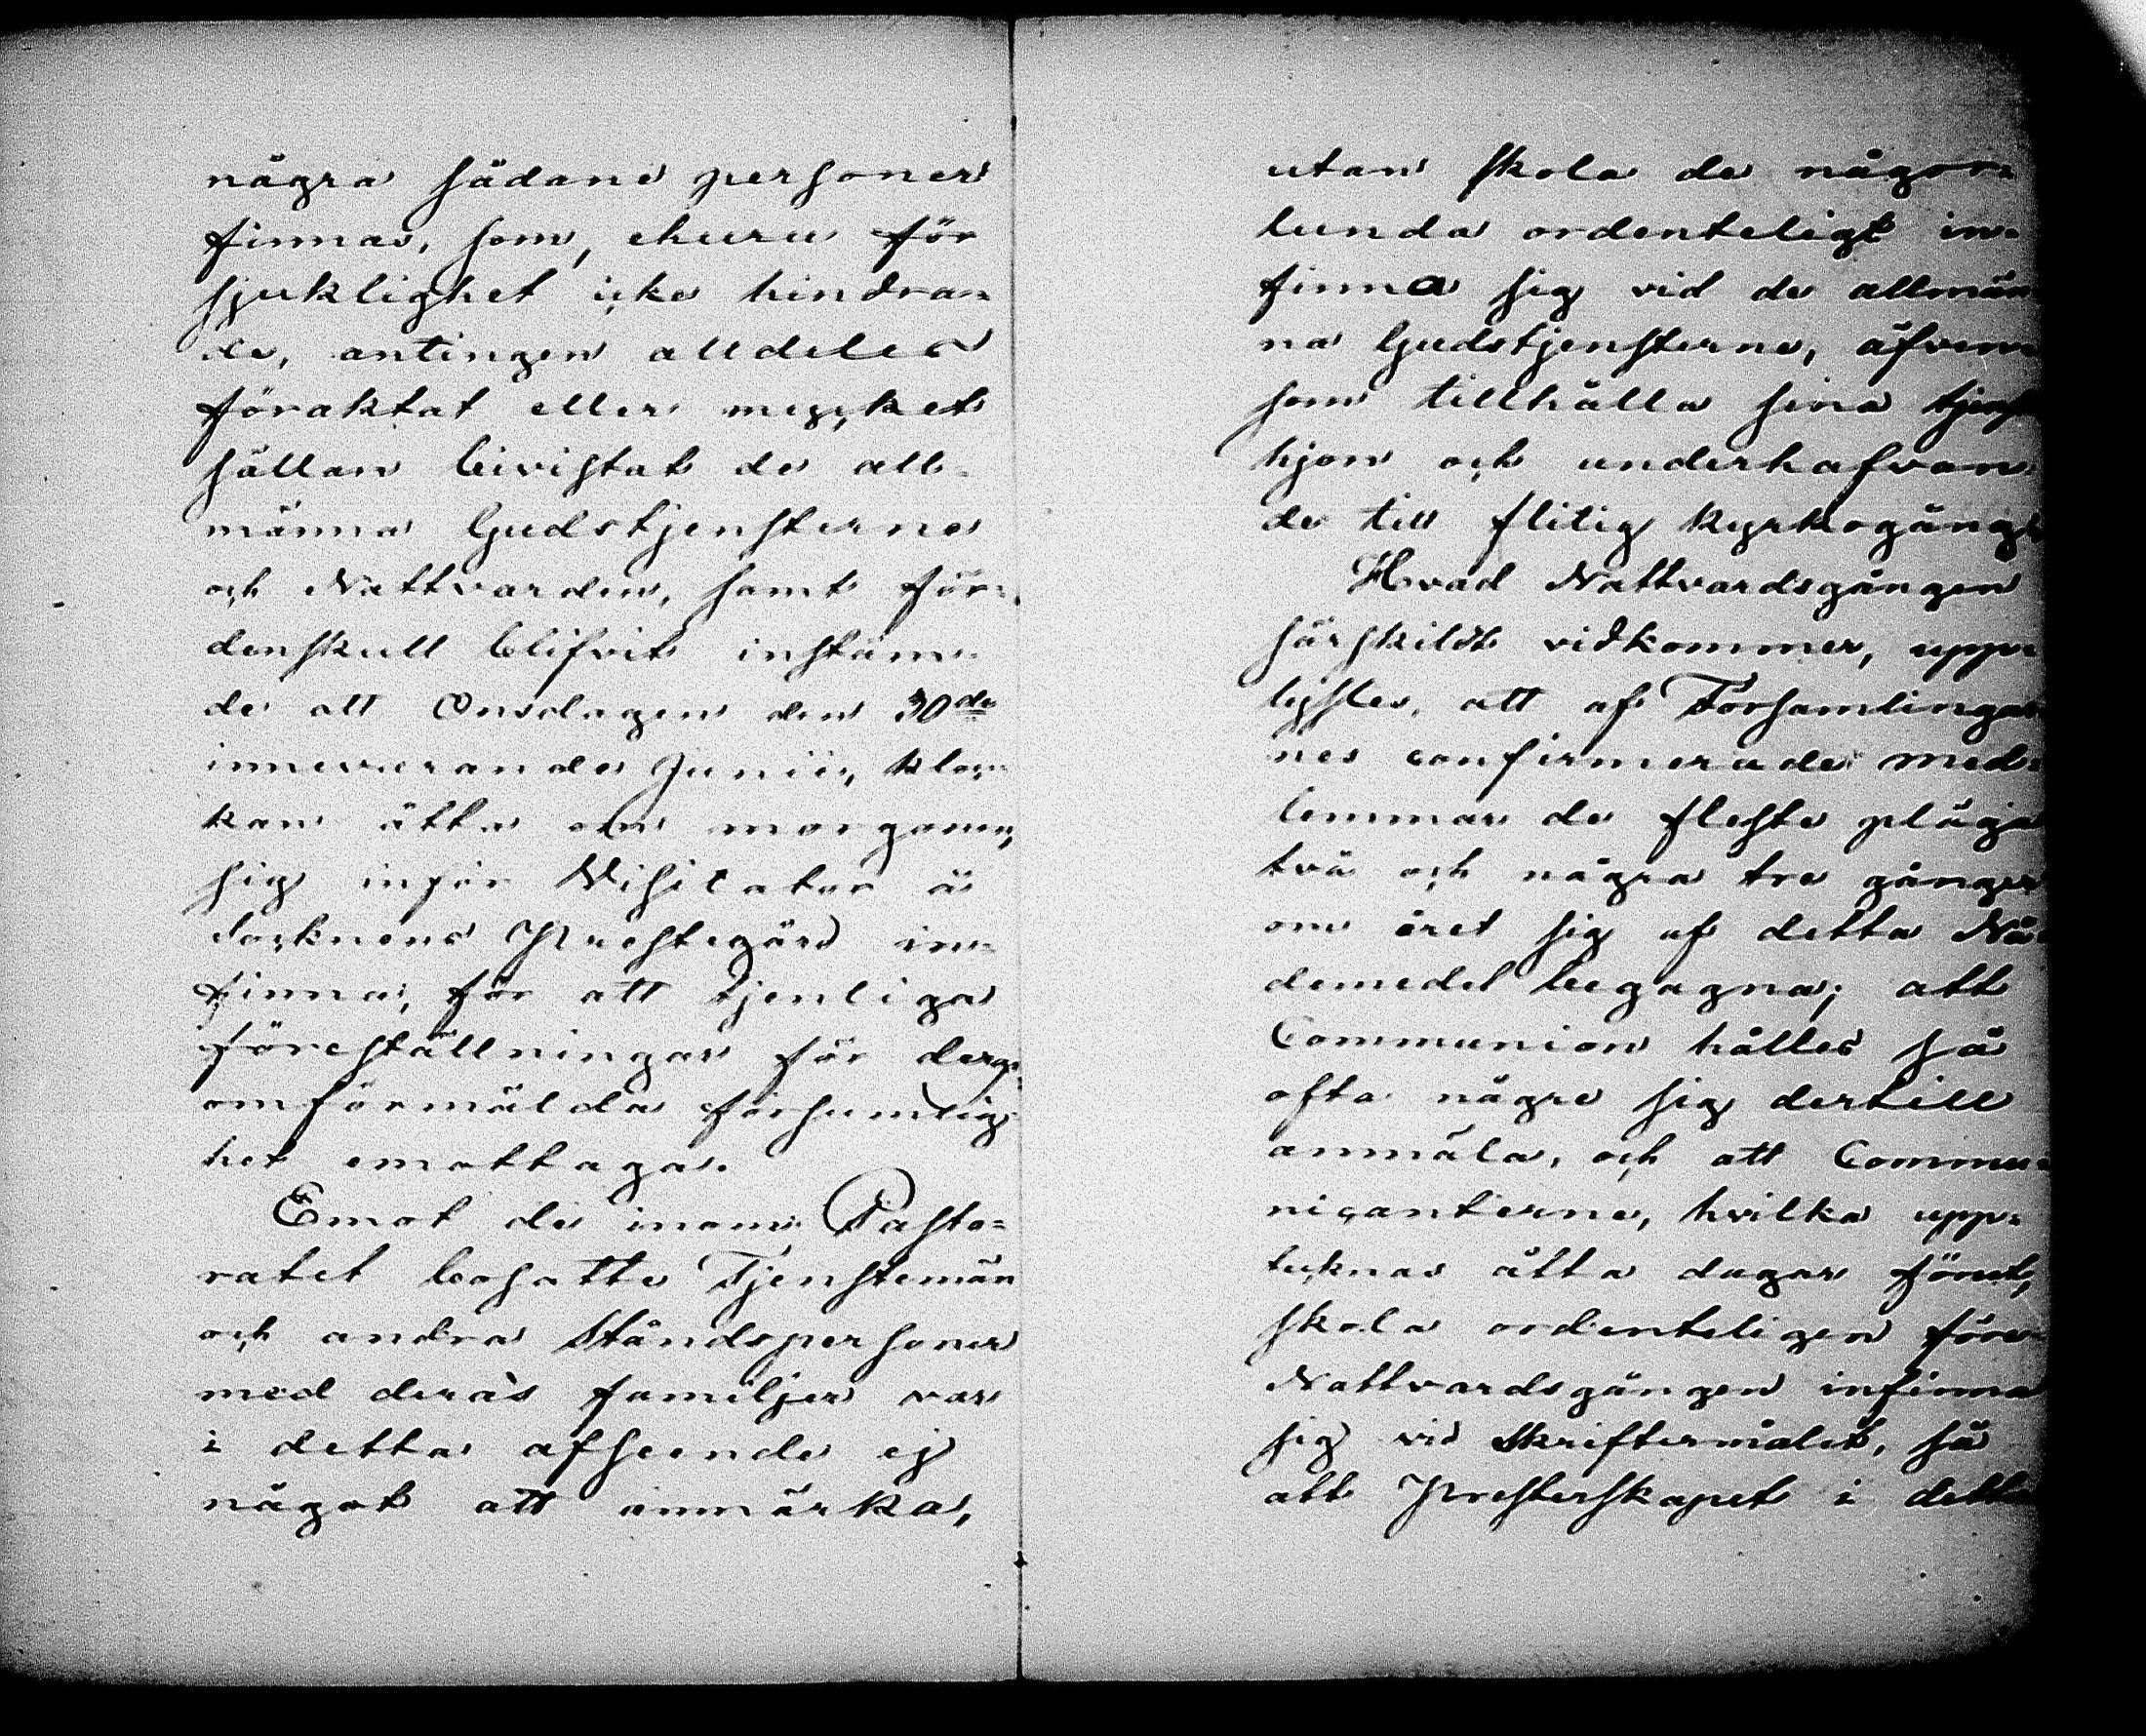 några sådane personer
finnas, som, ehuru för
sjuklighet icke hindra-
de, antingen alldeles
föraktat eller mycket
sällan bivistat de all-
männa Gudstjensterne
och Nattvarden, samt för-
denskull blifvit instäm-
de att Onsdagen den 30de
innevarande Junii, kloc-
kan åtta om morgonen,
sig inför Visitator å
Socknens Prestegård in-
finna, för att tjenliga
föreställningar för der-
omförmälda försumlig-
het emottaga.
Emot de inom Pasto=
ratet bosatte Tjenstemän
och andra Ståndspersoner
med deras familjer var
i detta afseende ej
något att anmärka,
utan skola de någor=
lunda ordenteligt in=
finna sig vid de allmän
na Gudstjensterne, äfven
som tillhålla sina tjenst
hjon och underhafvan
de till flitig kyrkogång
Hvad Nattvardsgången
särskildt vidkommer, upp=
lystes, att af Församlingar
nes confirmerade med=
lemmar de fleste pläga
två och några tre gånger
om året sig af detta Nå=
demedel begagna; att
Communion hålles så
ofta någre sig dertill
anmäla, och att Commu=
nicanterne, hvilka upp=
tecknas åtta dagar förut,
skola ordenteligen före
Nattvardsgången infinna
sig vid Skriftermålet, så
att Presterskapet i detta